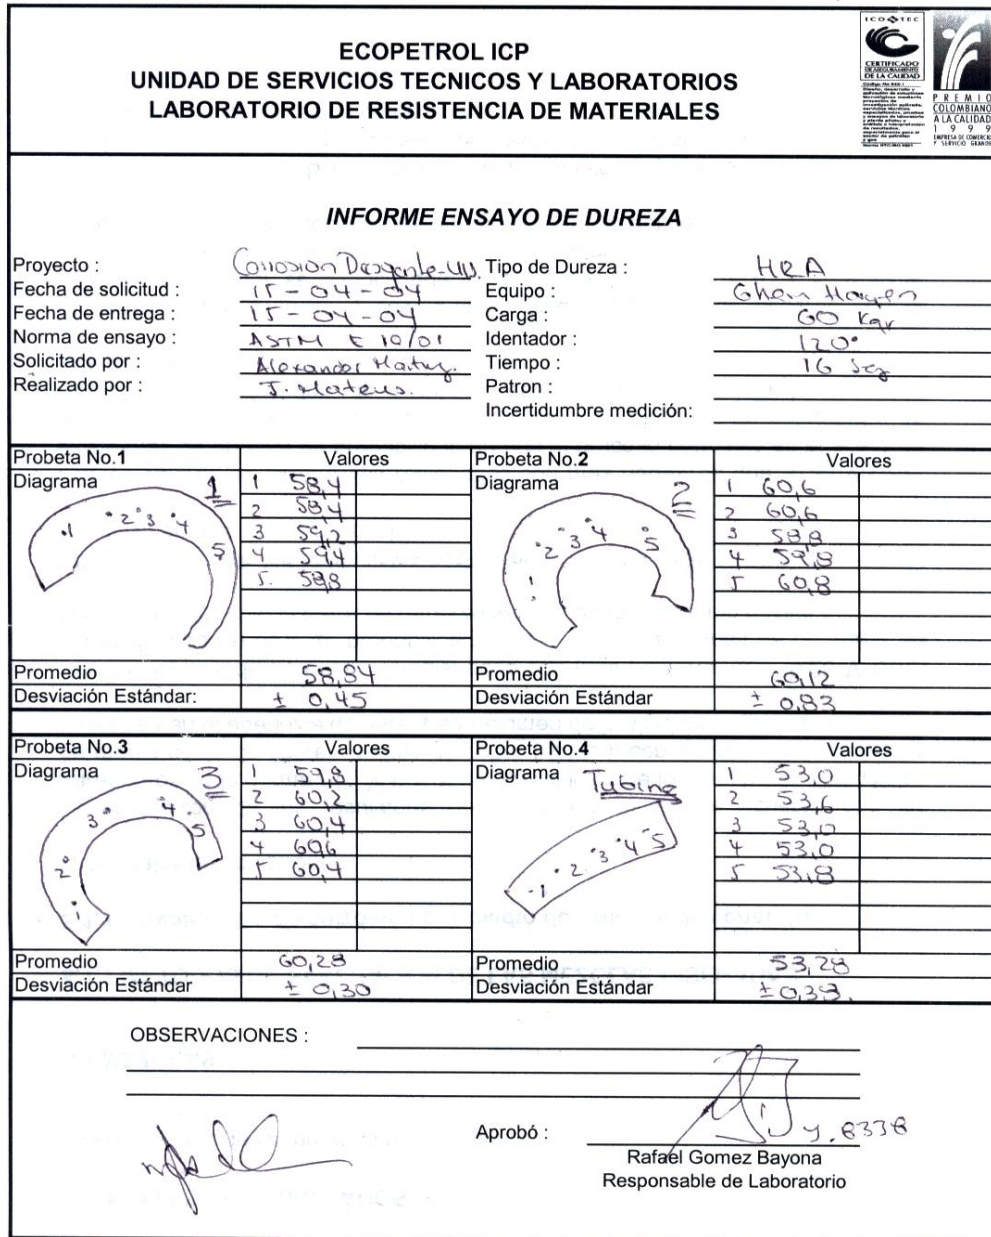 ECOPETROL ICP
UNIDAD DE SERVICIOS TECNICOS Y LABORATORIOS
LABORATORIO DE RESISTENCIA DE MATERIALES
ICO TEC
CERTIFICADO
DE ASEGURAMIENTO
DE LA CALIDAD
PREMIO
COLOMBIANO
A LA CALIDAD
1999
EMPRESA DE COMERCIO
Y SERVICIO GRANDE
INFORME ENSAYO DE DUREZA
Proyecto : Corrosion
Fecha de solicitud : 15-04-04
Fecha de entrega : 15-04-04
Norma de ensayo : ASTM E 10/01
Solicitado por : Alexander
Realizado por : J. Mateus.
Tipo de Dureza : HRA
Equipo :
Carga : 60 Kgr
Identador : 120°
Tiempo : 16 seg
Patron :
Incertidumbre medición:
Probeta No.1 Valores
Diagrama 1
1 2 3 4 5
1 58,4
2 58,4
3 59,2
4 59,4
5. 58,8
Promedio 58,84
Desviación Estándar: ± 0,45
Probeta No.2 Valores
Diagrama 2
1 2 3 4 5
1 60,6
2 60,6
3 58,8
4 59,8
5 60,8
Promedio 60,12
Desviación Estándar ± 0,83
Probeta No.3 Valores
Diagrama 3
1 2 3 4 5
1 59,8
2 60,2
3 60,4
4 60,6
5 60,4
Promedio 60,28
Desviación Estándar ± 0,30
Probeta No.4 Valores
Diagrama Tubing
1 2 3 4 5
1 53,0
2 53,6
3 53,0
4 53,0
5 53,8
Promedio 53,28
Desviación Estándar ± 0,39.
OBSERVACIONES :
Aprobó : 8338
Rafael Gomez Bayona
Responsable de Laboratorio